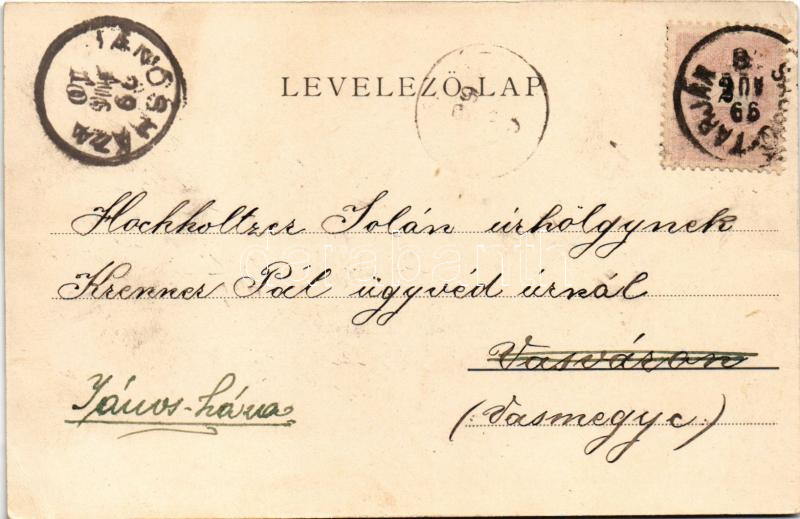 JÁNOSHÁZA
99 AUG 10
LEVELEZŐ LAP
99
TARJÁN
99 AUG 8
Hochholtzer Jolán úrhölgynek
Krenner Pál ügyvéd úrnál
Vasváron
János-háza
(Vasmegye.)
darabanth